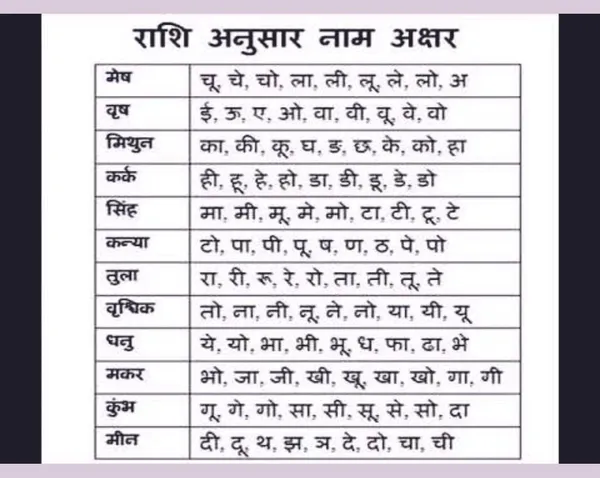 राशि अनुसार नाम अक्षर
मेष चू, चे, चो, ला, ली, लू, ले, लो, अ
वृष ई, ऊ, ए, ओ, वा, वी, वू, वे, वो
मिथुन का, की, कू, घ, ङ, छ, के, को, हा
कर्क ही, हू, हे, हो, डा, डी, डू, डे, डो
सिंह मा, मी, मू, मे, मो, टा, टी, टू, टे
कन्या टो, पा, पी, पू, ष, ण, ठ, पे, पो
तुला रा, री, रू, रे, रो, ता, ती, तू, ते
वृश्चिक तो, ना, नी, नू, ने, नो, या, यी, यू
धनु ये, यो, भा, भी, भू, ध, फा, ढा, भे
मकर भो, जा, जी, खी, खू, खा, खो, गा, गी
कुंभ गू, गे, गो, सा, सी, सू, से, सो, दा
मीन दी, दू, थ, झ, ञ, दे, दो, चा, ची